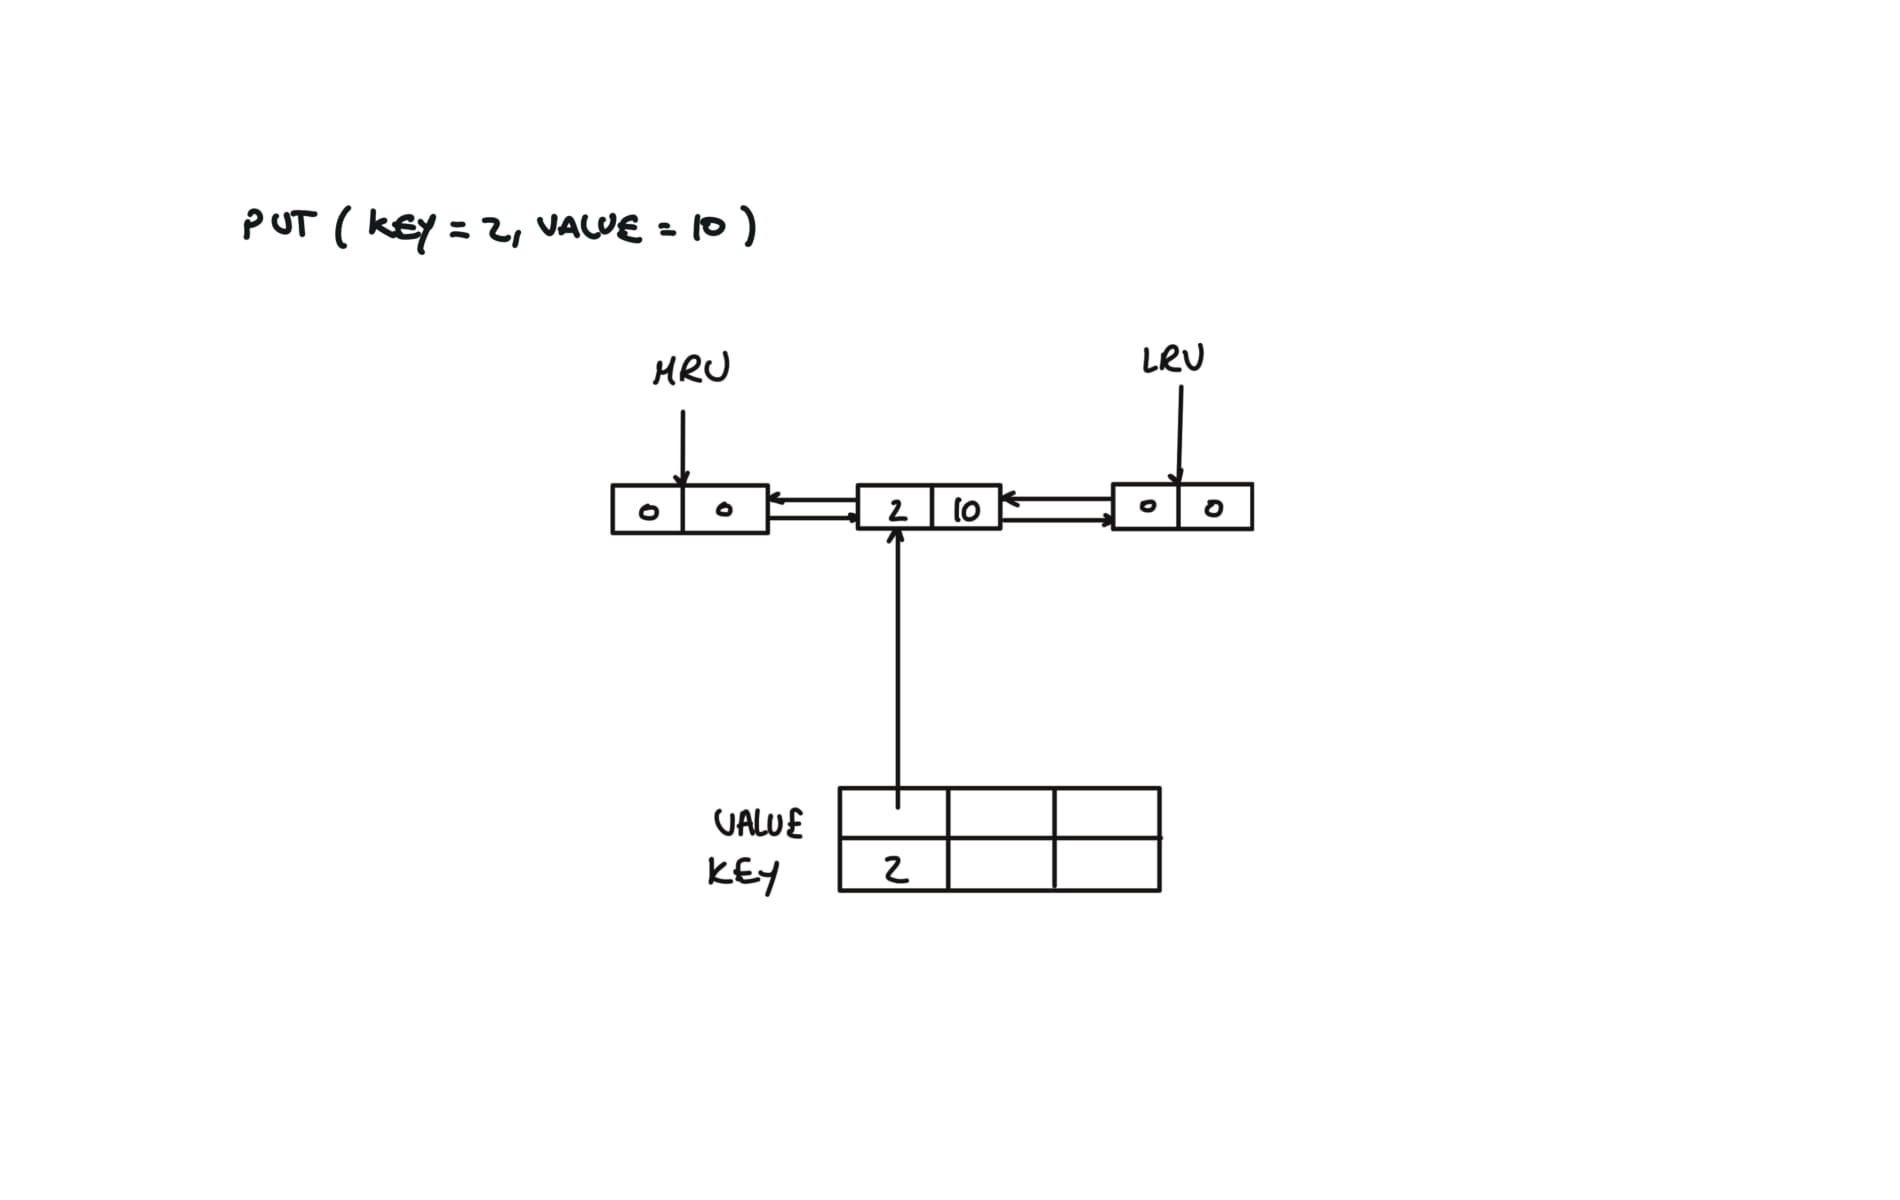 PUT ( KEY = 2, VALUE = 10 )
MRU LRU
0 0 2 10 0 0
VALUE
KEY 2